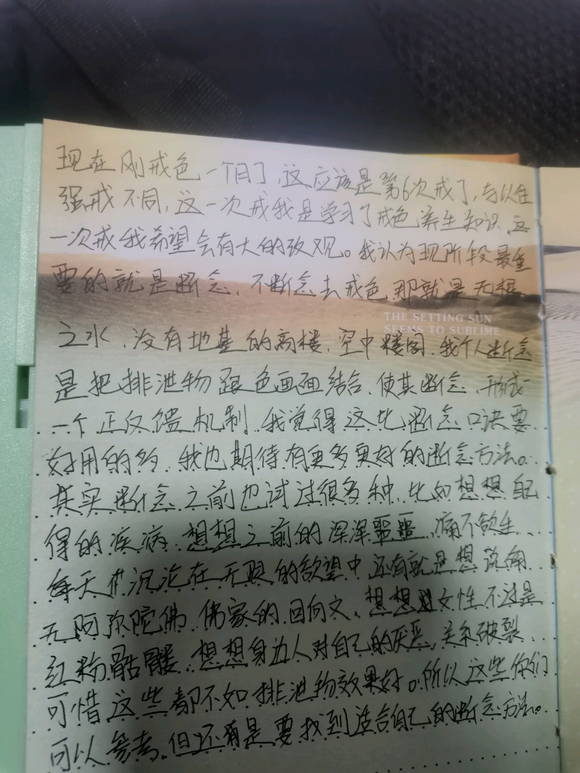 现在刚戒色一个月了,这应该是第6次戒了,与以往
强戒不同,这一次戒我是学习了戒色养生知识,这
一次戒我希望会有大的改观。我认为现阶段最重
要的就是断念,不断念去戒色,那就是无根
THE SETTING SUN
SEEMS TO SUBLIME
之水,没有地基的高楼,空中楼阁,我个人断念
是把排泄物跟色画面结合,使其断念,形成
一个正反馈机制,我觉得这比断念口诀要
好用的多,我也期待有更多更好的断念方法。
其实断念之前也试过很多种,比如想想自己
得的疾病,想想之前的深深罪恶,痛不欲生,
每天沉沦在无限的欲望中,还有就是想
阿弥陀佛,佛家的回向文,想想女性不过是
红粉骷髅,想想身边人对自己的厌恶,关系破裂,
可惜这些都不如排泄物效果好。所以这些你们
可以参考,但还有是要找到适合自己的断念方法。